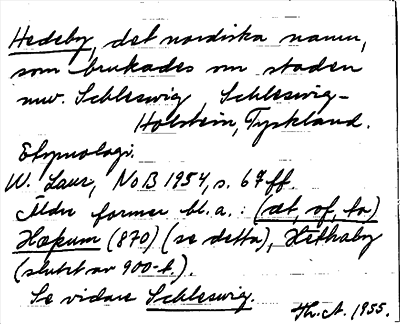 Hedeby, det nordiska namn,
som brukades om staden
nuv. Schleswig, Schleswig-
Holstein, Tyskland.
Etymologi.
W. Laur, NoB 1954, s. 67 ff.
Äldre former bl.a.: (æt, of, to)
Hæþum (870) (se detta), Heithaby
(slutet av 900-t.).
Se vidare Schleswig.
Th. A. 1955.